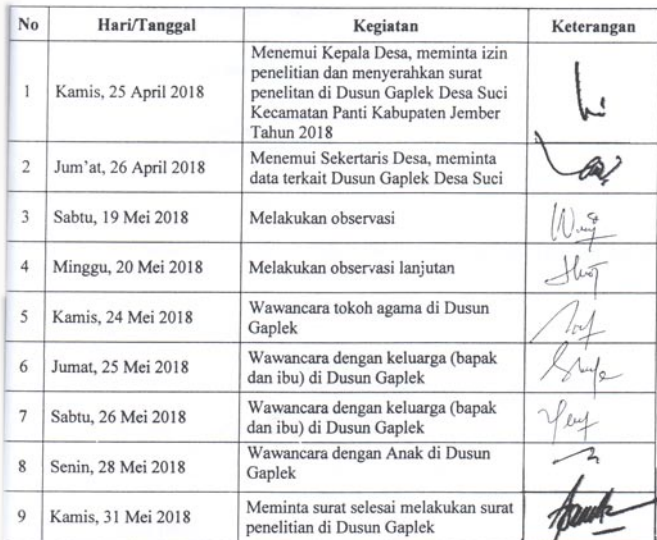 No Hari/Tanggal Kegiatan Keterangan
1 Kamis, 25 April 2018 Menemui Kepala Desa, meminta izin
penelitian dan menyerahkan surat
penelitan di Dusun Gaplek Desa Suci
Kecamatan Panti Kabupaten Jember
Tahun 2018
2 Jum'at, 26 April 2018 Menemui Sekertaris Desa, meminta
data terkait Dusun Gaplek Desa Suci
3 Sabtu, 19 Mei 2018 Melakukan observasi
4 Minggu, 20 Mei 2018 Melakukan observasi lanjutan
5 Kamis, 24 Mei 2018 Wawancara tokoh agama di Dusun
Gaplek
6 Jumat, 25 Mei 2018 Wawancara dengan keluarga (bapak
dan ibu) di Dusun Gaplek
7 Sabtu, 26 Mei 2018 Wawancara dengan keluarga (bapak
dan ibu) di Dusun Gaplek
8 Senin, 28 Mei 2018 Wawancara dengan Anak di Dusun
Gaplek
9 Kamis, 31 Mei 2018 Meminta surat selesai melakukan surat
penelitian di Dusun Gaplek